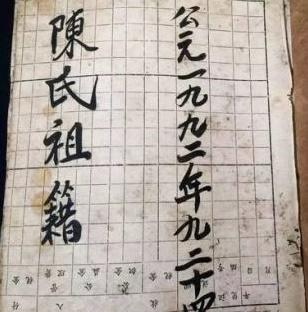 公元一九九二年九二十四
陳氏祖籍